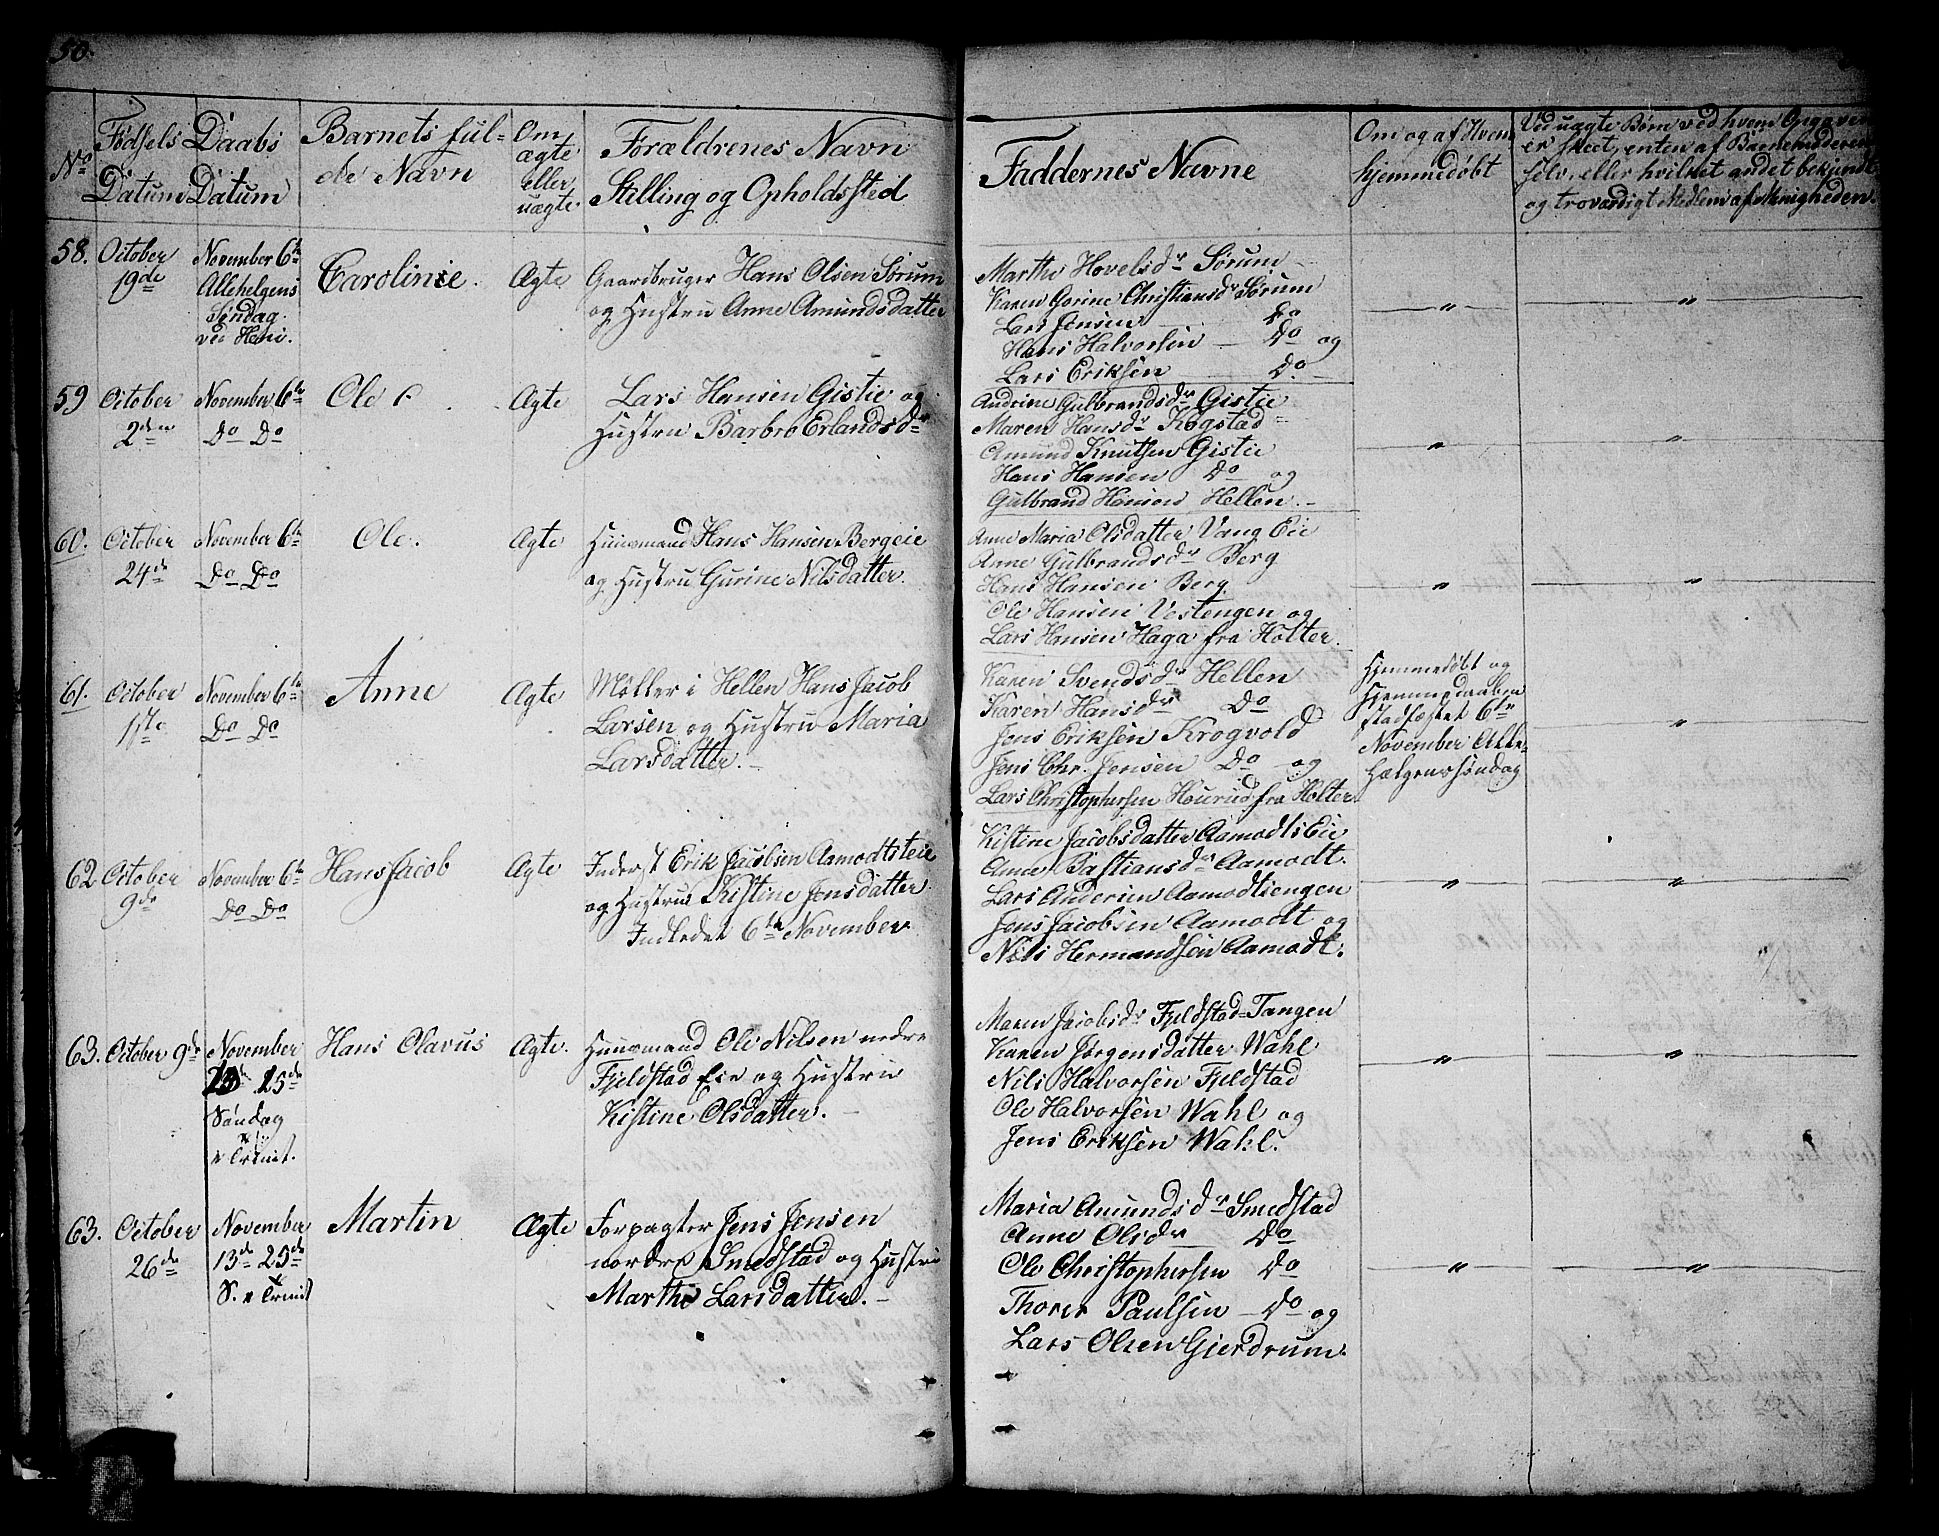 50.
No
Fødsels
Datum
Daabs
Datum
Barnets ful-
de Navn
Om
ægte
eller
uægte.
Forældrenes Navn
Stilling og Opholdssted
Faddernes Navne
Om og af Hvem
hjemmedøbt
Ved uægte Børn ved hvem Opgaven
er skeet, enten af Barnemoderen
selv, eller hvilket andet bekjendt
og troværdigt Medlem af Menigheden.
58.
October
19de
November 6te
Allehelgens
Søndag
Carolinie.
Ægte
Gaardbruger Hans Olsen Sørum
og Hustru Anne Amundsdatter
Marthe Hovelsdr Sørum
Karen Gorine Christiansdr Sørum
Lars Jensen Do
Hans Halvorsen Do og
Lars Eriksen Do
"
"
59
October
2den
November 6te
Do Do
Ole
Ægte
Lars Hansen Gistie og
Hustru Barbro Erlandsdr
Andrine Gulbrandsdr Gistie
Maren Hansdr Kogstad
Amund Knutsen Gistie
Hans Hansen Do og
Gulbrand Hanson Hellen.
"
"
60.
October
24de
November 6te
Do Do
Ole.
Ægte
Huusmand Hans Hansen Bergeie
og Hustru Gurine Nilsdatter.
Anne Maria Olsdatter Vang Eie
Anne Gulbrandsdr Berg
Hans Hansen Berg
Ole Hansen Vestengen og
Lars Hansen Haga fra Holter.
"
"
61.
October
1ste
November 6te
Do Do
Anne
Ægte
Møller i Hellen Hans Jacob
Larsen og Hustru Maria
Larsdatter.
Karen Svendsdr Hellen
Karen Hansdr Do
Jens Eriksen Krogvold
Jens Chr. Jensen Do og
Lars Christophersen Hourud fra Holter
Hjemmedøbt og
Hjemmedaaben
stadfæstet 6te
November Alle-
hælgenssøndag
"
62
October
9de
November 6te
Do Do
Hans Jacob
Ægte
Inderst Erik Jacobsen Aamodtseie
og Hustru Kistine Jensdatter
Indledet 6te November
Kistine Jacobsdatter Aamodts Eie
Anne Bastiansdr Aamodt.
Lars Andersen Aamodtsengen
Jens Jacobsen Aamodt og
Nils Hermandsen Aamodt.
"
"
63.
October 9de
November
25de
Søndag
e Trinit.
Hans Olavus
Ægte.
Huusmand Ole Nilsen nedre
Fjeldstad Eie og Hustru
Kistine Olsdatter.
Maren Jacobsdr Fjeldstad-Tangen
Karen Jørgensdatter Wahl
Nils Halvorsen Fjeldstad
Ole Halvorsen Wahl og
Jens Eriksen Wahl.
"
"
63.
October
26de
November
13de 25de
S. e Trinit
Martin
Ægte
Forpagter Jens Jensen
nordre Smedstad og Hustru
Marthe Larsdatter.
Maria Amundsdr Smedstad
Anne Olsdr Do
Ole Christophersen Do
Thorer Paulsen Do og
Lars Olsen Gjerdrum.
"
"